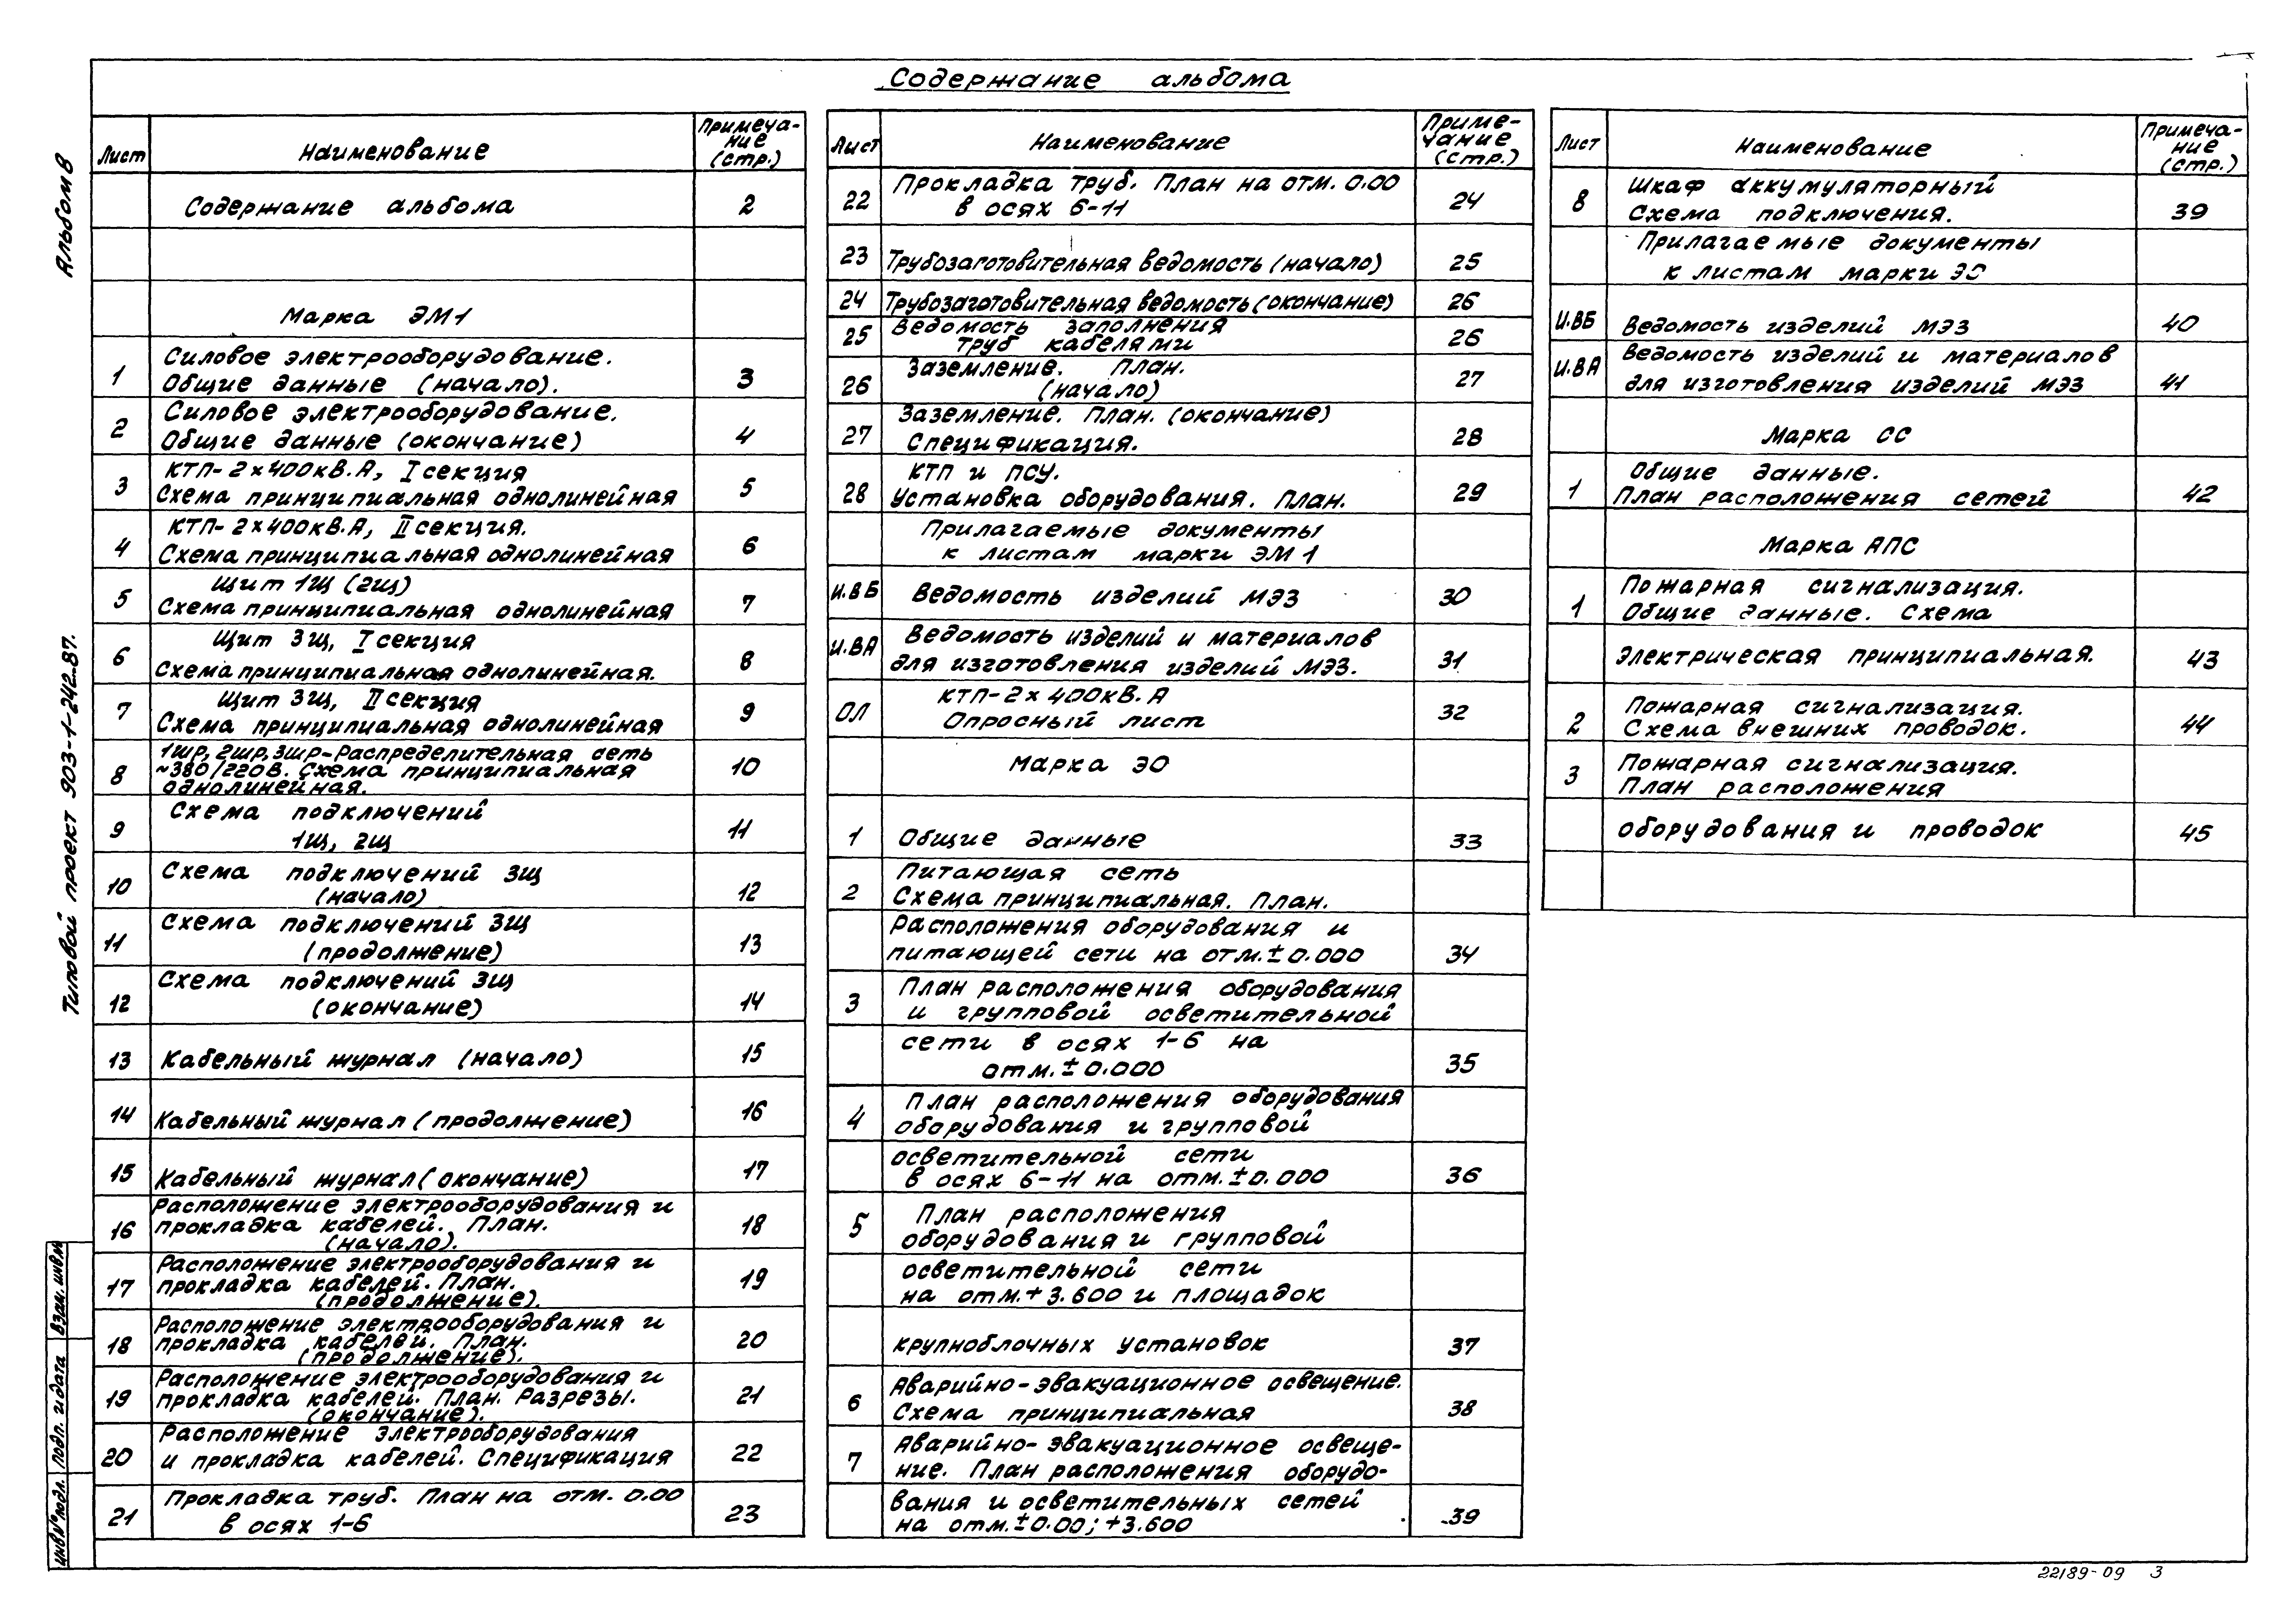 Содержание альбома
Альбом 8
Типовой проект 903-1-242.87.
Лист Наименование Примеча-
ние
(стр.)
Содержание альбома 2
Марка ЭМ1
1 Силовое электрооборудование.
Общие данные (начало). 3
2 Силовое электрооборудование.
Общие данные (окончание) 4
3 КТП-2×400кВ.А, I секция
Схема принципиальная однолинейная 5
4 КТП-2×400кВ.А, II секция.
Схема принципиальная однолинейная 6
5 Щит 1Щ (2Щ)
Схема принципиальная однолинейная 7
6 Щит 3Щ, I секция
Схема принципиальная однолинейная. 8
7 Щит 3Щ, II секция
Схема принципиальная однолинейная 9
8 1шр, 2шр, 3шр-Распределительная сеть
~380/220В. Схема принципиальная
однолинейная. 10
9 Схема подключений
1Щ, 2Щ 11
10 Схема подключений 3Щ
(начало) 12
11 Схема подключений 3Щ
(продолжение) 13
12 Схема подключений 3Щ
(окончание) 14
13 Кабельный журнал (начало) 15
14 Кабельный журнал (продолжение) 16
15 Кабельный журнал (окончание) 17
16 Расположение электрооборудования и
прокладка кабелей. План.
(начало). 18
17 Расположение электрооборудования и
прокладка кабелей. План.
(продолжение). 19
18 Расположение электрооборудования и
прокладка кабелей. План.
(продолжение). 20
19 Расположение электрооборудования и
прокладка кабелей. План. Разрезы.
(окончание). 21
20 Расположение электрооборудования
и прокладка кабелей. Спецификация 22
21 Прокладка труб. План на отм. 0.00
в осях 1-6 23
Лист Наименование Приме-
чание
(стр.)
22 Прокладка труб. План на отм. 0.00
в осях 6-11 24
23 Трубозаготовительная ведомость (начало) 25
24 Трубозаготовительная ведомость (окончание) 26
25 Ведомость заполнения
труб кабелями 26
26 Заземление. План.
(начало) 27
27 Заземление. План. (окончание)
Спецификация. 28
28 КТП и ПСУ.
Установка оборудования. План. 29
Прилагаемые документы
к листам марки ЭМ 1
И.ВБ Ведомость изделий МЭЗ 30
И.ВА Ведомость изделий и материалов
для изготовления изделий МЭЗ. 31
ОЛ КТП-2×400кВ.А
Опросный лист 32
Марка ЭО
1 Общие данные 33
2 Питающая сеть
Схема принципиальная. План.
расположения оборудования и
питающей сети на отм.±0.000 34
3 План расположения оборудования
и групповой осветительной
сети в осях 1-6 на
отм.±0.000 35
4 План расположения оборудования
оборудования и групповой
осветительной сети
в осях 6-11 на отм.±0.000 36
5 План расположения
оборудования и групповой
осветительной сети
на отм.+3.600 и площадок
крупноблочных установок 37
6 Аварийно-эвакуационное освещение.
Схема принципиальная 38
7 Аварийно-эвакуационное освеще-
ние. План расположения оборудо-
вания и осветительных сетей
на отм.±0.00; +3.600 39
Лист Наименование Примеча-
ние
(стр.)
8 Шкаф аккумуляторный
Схема подключения. 39
Прилагаемые документы
к листам марки ЭО
И.ВБ Ведомость изделий МЭЗ 40
И.ВА Ведомость изделий и материалов
для изготовления изделий МЭЗ 41
Марка СС
1 Общие данные.
План расположения сетей 42
Марка АПС
1 Пожарная сигнализация.
Общие данные. Схема
электрическая принципиальная. 43
2 Пожарная сигнализация.
Схема внешних проводок. 44
3 Пожарная сигнализация.
План расположения
оборудования и проводок 45
Взам. инв.№
Подп. и дата
Инв.№ подл.
22189-09 3